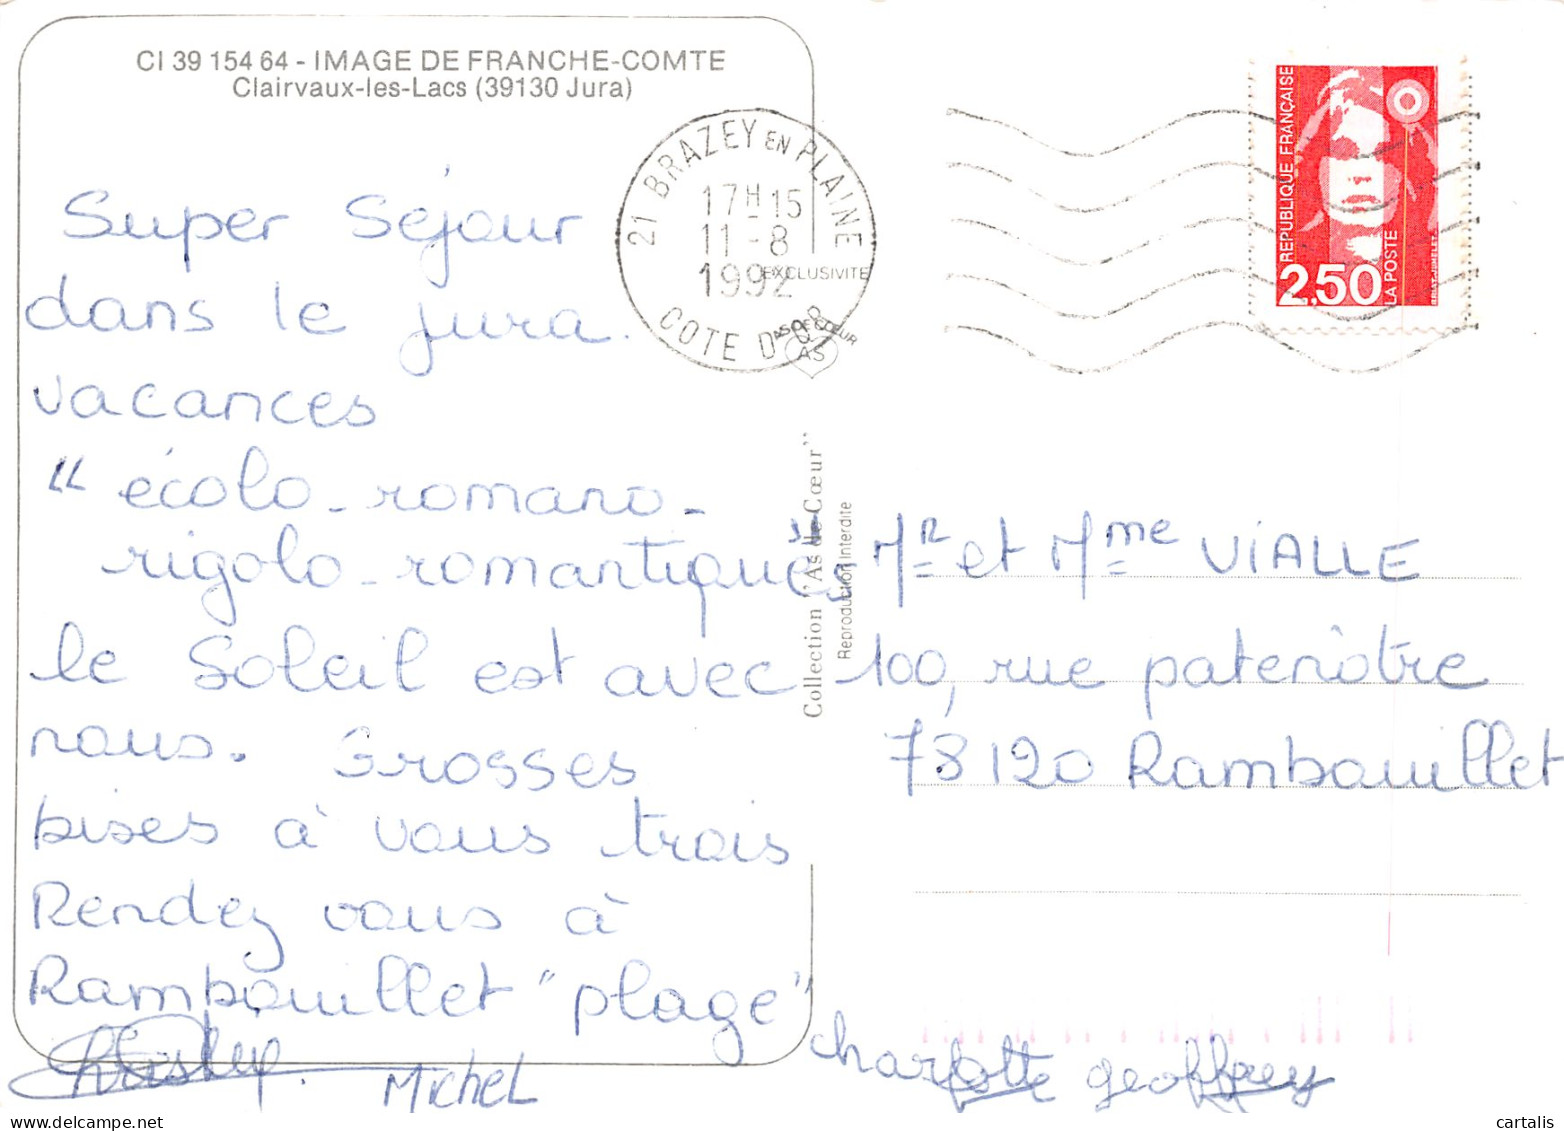 CI 39 154 64 - IMAGE DE FRANCHE-COMTE
Clairvaux-les-Lacs (39130 Jura)
Super Séjour
dans le jura.
vacances
“ écolo-romano-
rigolo-romantiques”
le Soleil est avec
nous. Grosses
bises à vous trois
Rendez vous à
Rambouillet "plage"
Michel
charlotte geoffrey
21 BRAZEY EN PLAINE
17H15
11-8
1992
COTE D'OR
EXCLUSIVITE
AS DE CŒUR
AS
Collection "As de Cœur"
Reproduction Interdite
REPUBLIQUE FRANÇAISE
2,50
LA POSTE
Mr et Mme VIALLE
100, rue patenôtre
78120 Rambouillet
cartalis